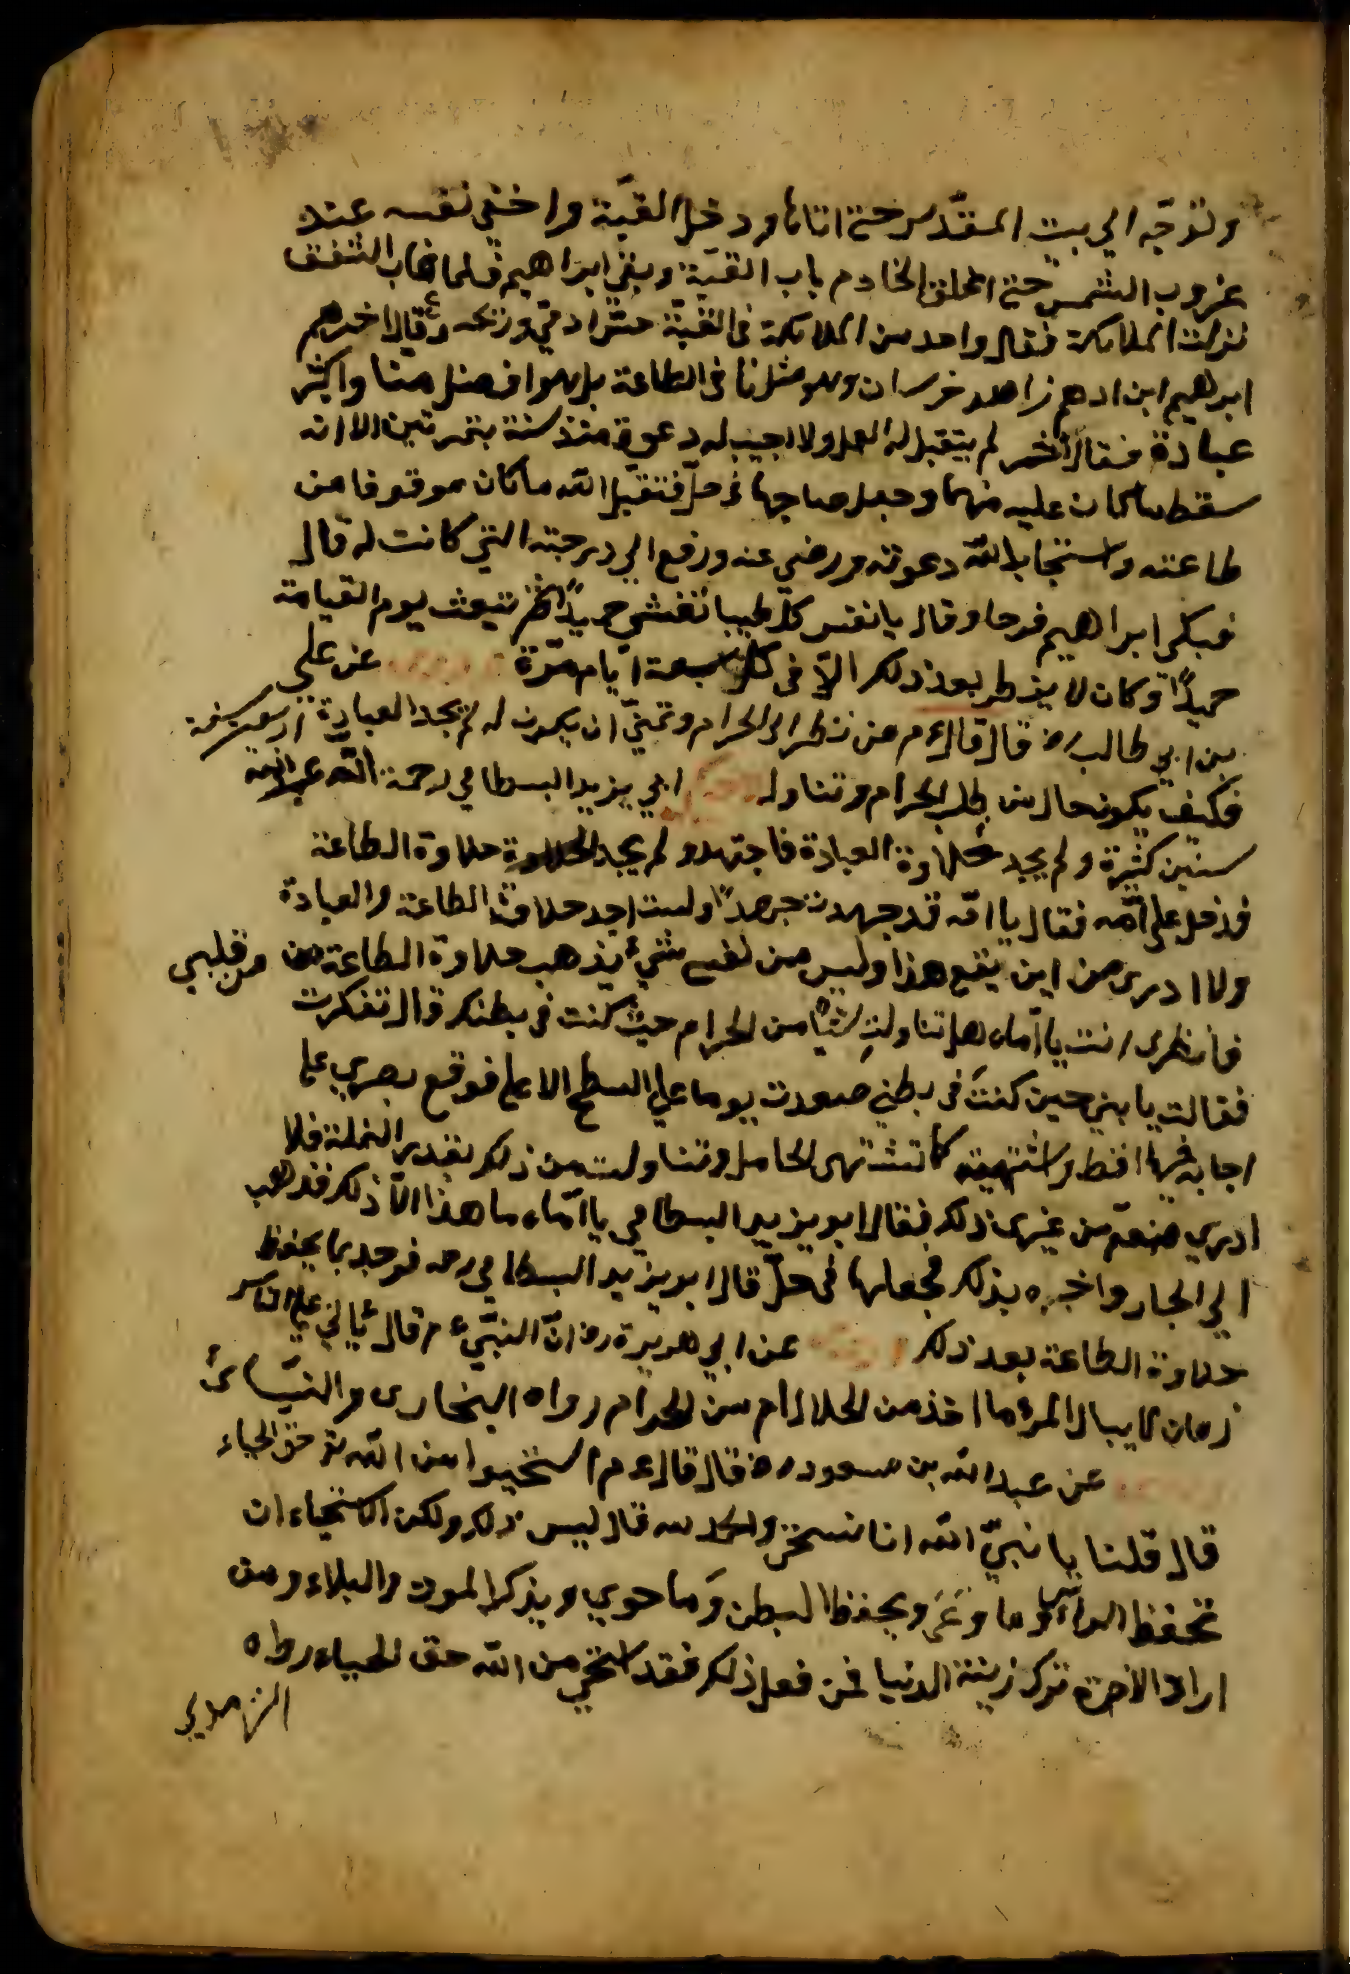 وتوجّه الي بيت المقدّس حتى اتاها ودخل القبّة واخفى نفسه عند
غروب الشمس حتى اغلق الخادم باب القبّة وبقي ابراهيم فلما غاب الشفق
نزلت الملائكة فقال واحد من الملائكة فى القبّة حسّ ادمي وريحه وقال اخرهم
ابراهيم ابن ادهم زاهد خراسان وهو مثلنا فى الطاعة بل هو افضل منا واكثر
عبادة فقال اخر لم يتقبل له العمل ولا اجيب له دعوة منذ سنة بتمرتين الا انه
سقط ما كان عليه منهما وجعل صاحبها فى حلّ فتقبّل الله ما كان موقوفا من
طاعته واستجاب الله دعوته ورضي عنه ورفع الي درجته التى كانت له قال
فبكى ابراهيم فرحا وقال يا نفس كل طيبا تبعث يوم القيامة
حميدًا وكان لا يفطر بعد ذلك الّا فى كل سبعة ايّام مرّة عن علي
بن ابي طالب رض قال قال ءم من نظر الى الحرام وتمنّي ان يكون له لم يجد العبادة اربعين سنة
فكيف يكون حال من طلب الحرام وتناوله ابي يزيد البسطامي رحمة الله عبد الله
سنين كثيرة ولم يجد حلاوة العبادة فاجتهد ولم يجد حلاوة الطاعة
فدخل على امّه فقال يا امّه قد جهدت جهدًا ولست اجد حلاوة الطاعة والعبادة
ولا ادرى من اين يقع هذا وليس من نفسى شىء يذهب حلاوة الطاعة من قلبي
فانظرى انت يا امّاه هل تناولتِ شيئا من الحرام حيث كنت فى بطنك قال تفكرت
فقالت يا بني حين كنتَ فى بطني صعدت يوما على السطح الاعلى فوقع بصري على
اجابة فيها اقط واشتهيته كما تشتهى الحامل وتناولت من ذلك بقدر النملة فلا
ادري صنعتم من غيرى ذلك فقال ابو يزيد البسطامي يا امّاه ما هذا الّا ذلك فذهب
الي الجار واخبره بذلك فجعلها فى حلّ قال ابو يزيد البسطامي رحه فوجد
حلاوة الطاعة بعد ذلك عن ابي هريرة رض انّ النبيّ ءم قال يأتي على الناس
زمان لا يبال المرء ما اخذ من الحلال ام من الحرام رواه البخارى والنسائى
عن عبد الله بن مسعود رض قال قال ءم استحيوا من الله تع حق الحياء
قال قلنا يا نبيّ الله انا نستحى والحمد لله قال ليس ذلك ولكن الاستحياء ان
تحفظ الرأس وما وعى وتحفظ البطن وما حوي ويذكر الموت والبلاء ومن
اراد الاخرة ترك زينة الدنيا فمن فعل ذلك فقد استحي من الله حق الحياء رواه
الترمذي